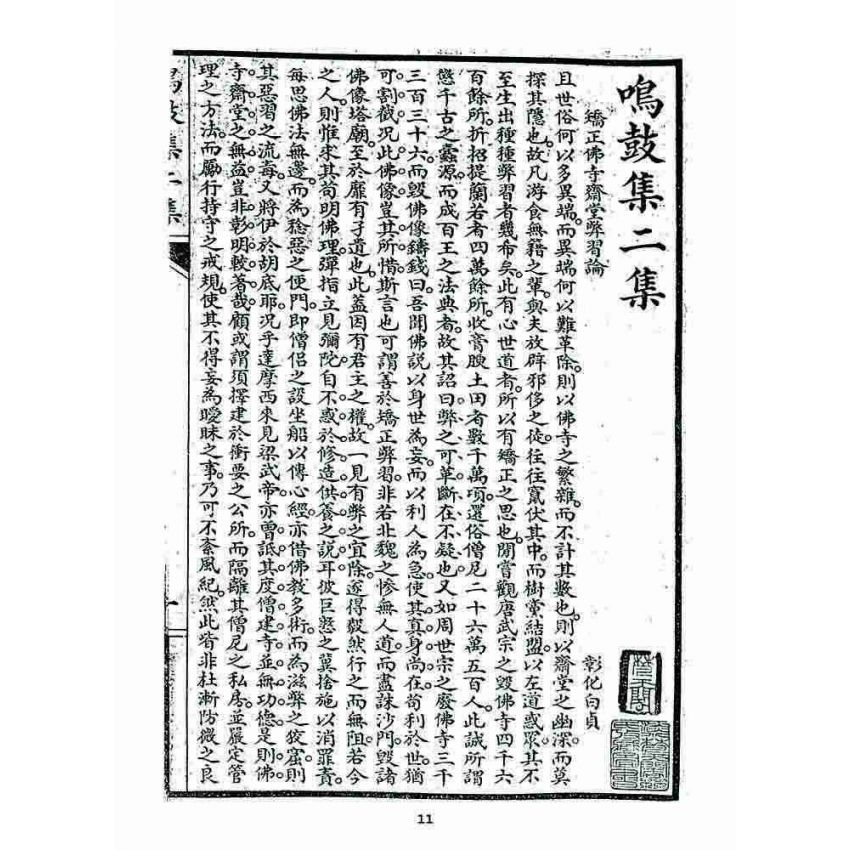 鳴鼓集二集
矯正佛寺齋堂弊習論
彰化白貞
且世俗何以多異端。而異端何以難革除。則以佛寺之繁雜。而不計其數也。則以齋堂之幽深。而莫
探其隱也。故凡游食無籍之輩。與夫放辟邪侈之徒。往往竄伏其中。而樹黨結盟。以左道惑眾。其不
至生出種種弊習者幾希矣。此有心世道者。所以有矯正之思也。閒嘗觀唐武宗之毀佛寺四千六
百餘所。折招提蘭若者四萬餘所。收膏腴土田者數千萬項。還俗僧尼二十六萬五百人。此誠所謂
懲千古之蠹源。而成百王之法典者。故其詔曰。弊之可革。斷在不疑也。又如周世宗之廢佛寺三千
三百三十六。而毀佛像鑄錢。曰。吾聞佛說以身世為妄。而以利人為急。使其真身尚在。苟利於世。猶
可割截。況此佛像。豈其所惜。斯言也可謂善於矯正弊習。非若北魏之慘無人道。而盡誅沙門。毀諸
佛像塔廟。至於靡有孑遺也。此蓋因有君主之權。故一見有弊之宜除。遂得毅然行之而無阻。若今
之人則惟求其苟明佛理。彈指立見彌陀。自不惑於修造供養之說耳。彼巨憝之冀捨施以消罪責
每思佛法無邊。而為稔惡之便門。即僧侶之設坐船以傳心經。亦借佛教多術。而為滋弊之狡窟。則
其惡習之流毒。又將伊於胡底耶。況乎達摩西來。見梁武帝。亦曾詆其度僧建寺。並無功德。是則佛
寺齋堂之無益。豈非彰明較著哉。顧或謂須擇建於衝要之公所。而隔離其僧尼之私房。並嚴定管
理之方法。而厲行持守之戒規。使其不得妄為曖昧之事。乃可不紊風紀。然此皆非杜漸防微之良
鳴鼓集二集
一
11